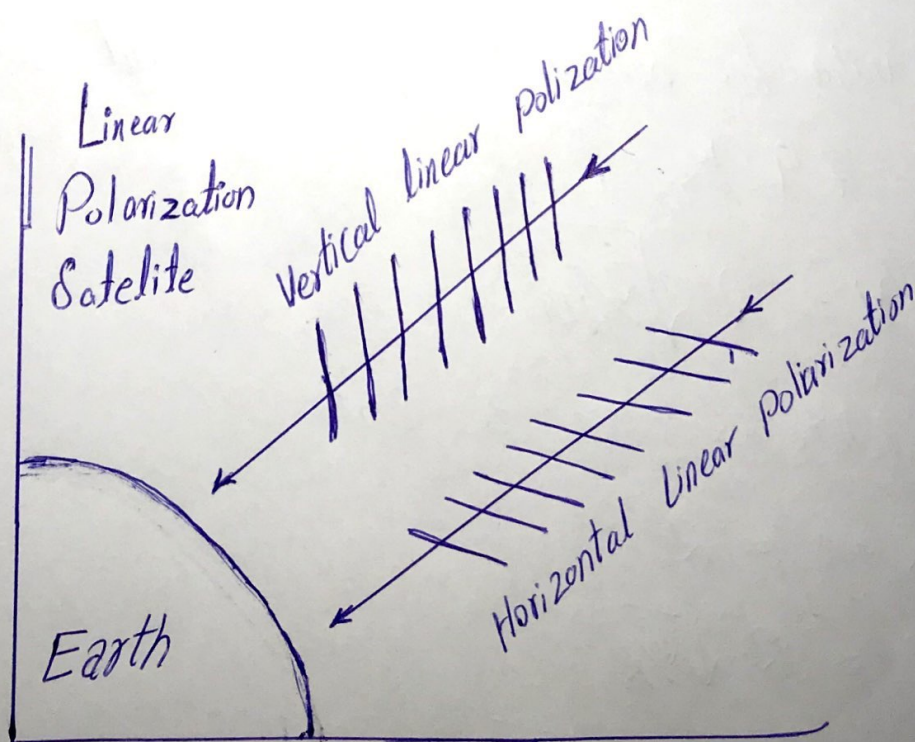 Linear
Polarization
Satelite
Vertical linear polization
Horizontal Linear polarization
Earth